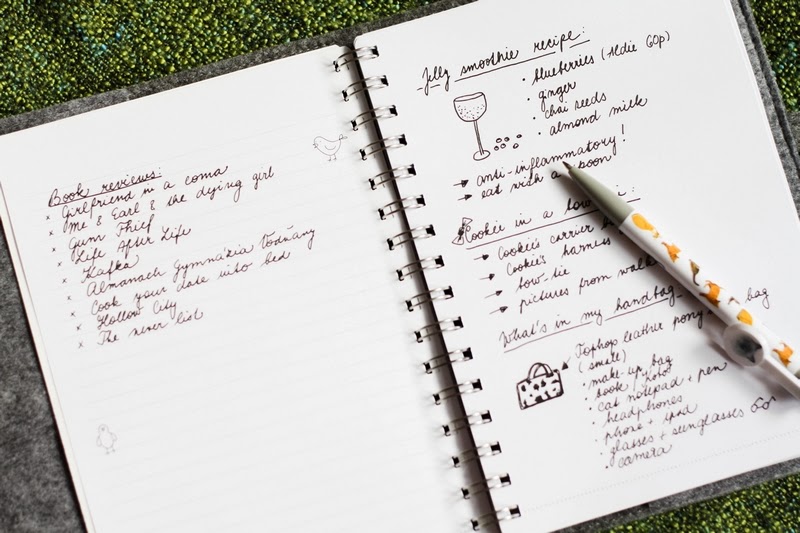 Book reviews:
x Girlfriend in a coma
x Me & Earl & the dying girl
x Gum Thief
x Life After Life
x Kafka
x Almanach Gymnázia Vodňany
x Cook your date into bed
x Hollow City
x The never list
Jelly smoothie recipe:
• blueberries (Aldie 60p)
• ginger
• chai seeds
• almond milk
→ anti-inflammatory!
→ eat with a spoon
Cookie in a
→ Cookie's carrier
→ Cookie's harness
→ bow-tie
→ pictures from
What's in my handbag
Tophop leather pony bag
(small)
• make-up bag
• book Kobo
• cat notepad + pen
• headphones
• phone + ipod
• glasses + sunglasses
• camera